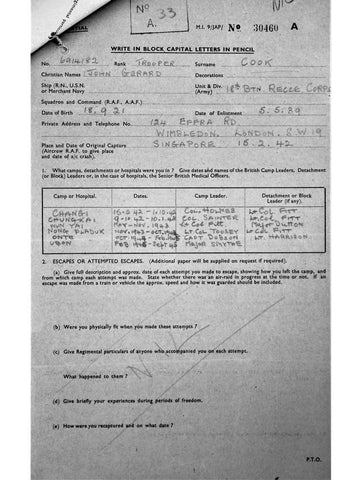 No.
33
A.
M.I. 9/JAP/ No 30460 A
WRITE IN BLOCK CAPITAL LETTERS IN PENCIL
No. 6914182 Rank TROOPER Surname COOK
Christian Names JOHN GERARD Decorations
Ship (R.N., U.S.N. or Merchant Navy) Unit & Div. (Army) 18th BTN RECCE CORPS
Squadron and Command (R.A.F., A.A.F.)
Date of Birth 18.9.21 Date of Enlistment 5.5.39
Private Address and Telephone No. 124 EFFRA RD
WIMBLEDON. LONDON. S.W.19
Place and Date of Original Capture SINGAPORE 15.2.42
(Aircrew R.A.F. to give place and date of a/c crash).
1. What camps, detachments or hospitals were you in? Give dates and names of the British Camp Leaders, Detachment
(or Block) Leaders or, in case of hospitals, the Senior British Medical Officers.
Camp or Hospital. Dates. Camp Leader. Detachment or Block Leader (if any).
CHANGI COL. HOLMES Lt Col PITT
CHUNGKAI Lt Col PITT
MAY-NOV. 1943 Lt Col PITT Major
NONG PLADUK Lt Col PITT
CAPT DOBSON Lt. HARRISON
UBON Major SMYTHE
2. ESCAPES OR ATTEMPTED ESCAPES. (Additional paper will be supplied on request if required).
(a) Give full description and approx. date of each attempt you made to escape, showing how you left the camp, and
from which camp each attempt was made. State whether there was an air-raid in progress at the time or not. If an
escape was made from a train or vehicle the approx. speed and how it was guarded should be included.
(b) Were you physically fit when you made these attempts?
(c) Give Regimental particulars of anyone who accompanied you on each attempt.
What happened to them?
(d) Give briefly your experiences during periods of freedom.
(e) How were you recaptured and on what date?
P.T.O.